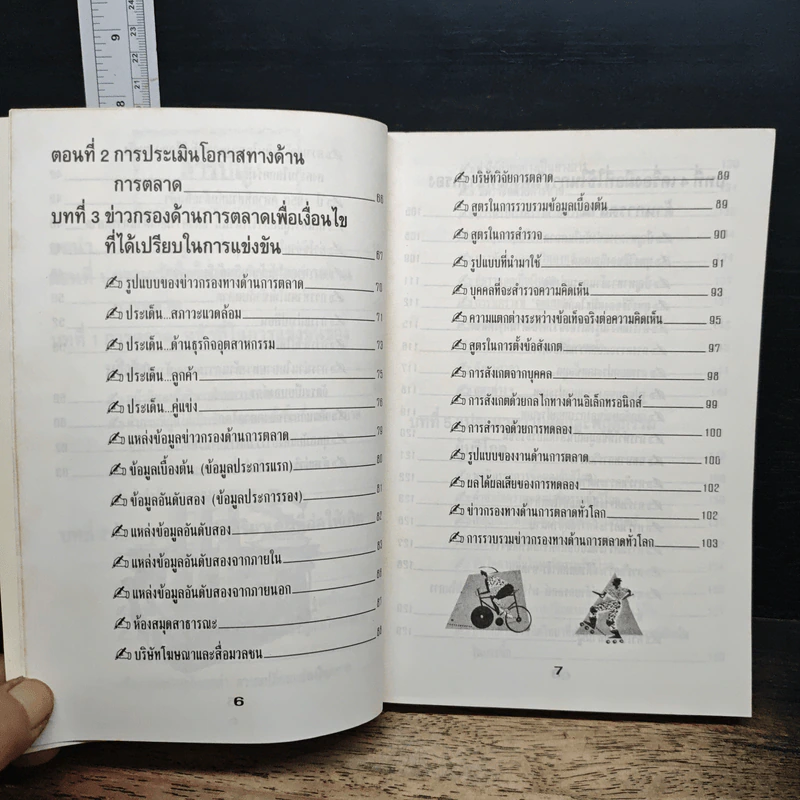 9
8
24
23
22
21
ตอนที่ 2 การประเมินโอกาสทางด้าน
การตลาด 66
บทที่ 3 ข่าวกรองด้านการตลาดเพื่อเงื่อนไข
ที่ได้เปรียบในการแข่งขัน 67
รูปแบบของข่าวกรองทางด้านการตลาด 70
ประเด็น...สภาวะแวดล้อม 71
ประเด็น...ด้านธุรกิจอุตสาหกรรม 73
ประเด็น...ลูกค้า 75
ประเด็น...คู่แข่ง
แหล่งข้อมูลข่าวกรองด้านการตลาด 79
ข้อมูลเบื้องต้น (ข้อมูลประการแรก)
ข้อมูลอันดับสอง (ข้อมูลประการรอง) 81
แหล่งข้อมูลอันดับสอง 82
แหล่งข้อมูลอันดับสองจากภายใน
แหล่งข้อมูลอันดับสองจากภายนอก
ห้องสมุดสาธารณะ 87
บริษัทโฆษณาและสื่อมวลชน
6
บริษัทวิจัยการตลาด 89
สูตรในการรวบรวมข้อมูลเบื้องต้น 89
สูตรในการสำรวจ 90
รูปแบบที่นำมาใช้ 91
บุคคลที่จะสำรวจความคิดเห็น 93
ความแตกต่างระหว่างข้อเท็จจริงต่อความคิดเห็น 95
สูตรในการตั้งข้อสังเกต 97
การสังเกตจากบุคคล 98
การสังเกตด้วยกลไกทางด้านอิเล็กทรอนิกส์ 99
การสำรวจด้วยการทดลอง 100
รูปแบบของงานด้านการตลาด 100
ผลได้ผลเสียของการทดลอง 102
ข่าวกรองทางด้านการตลาดทั่วโลก 102
การรวบรวมข่าวกรองทางด้านการตลาดทั่วโลก 103
7